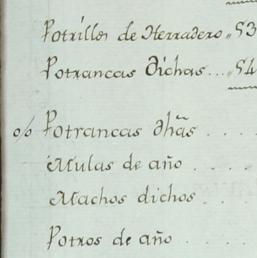 Potrillos de Herradero „ 53
Potrancas Dichas... „ 54
o/o Potrancas dhãs . . . .
Mulas de año . . . . .
Machos dichos . . .
Potros de año . . . . .